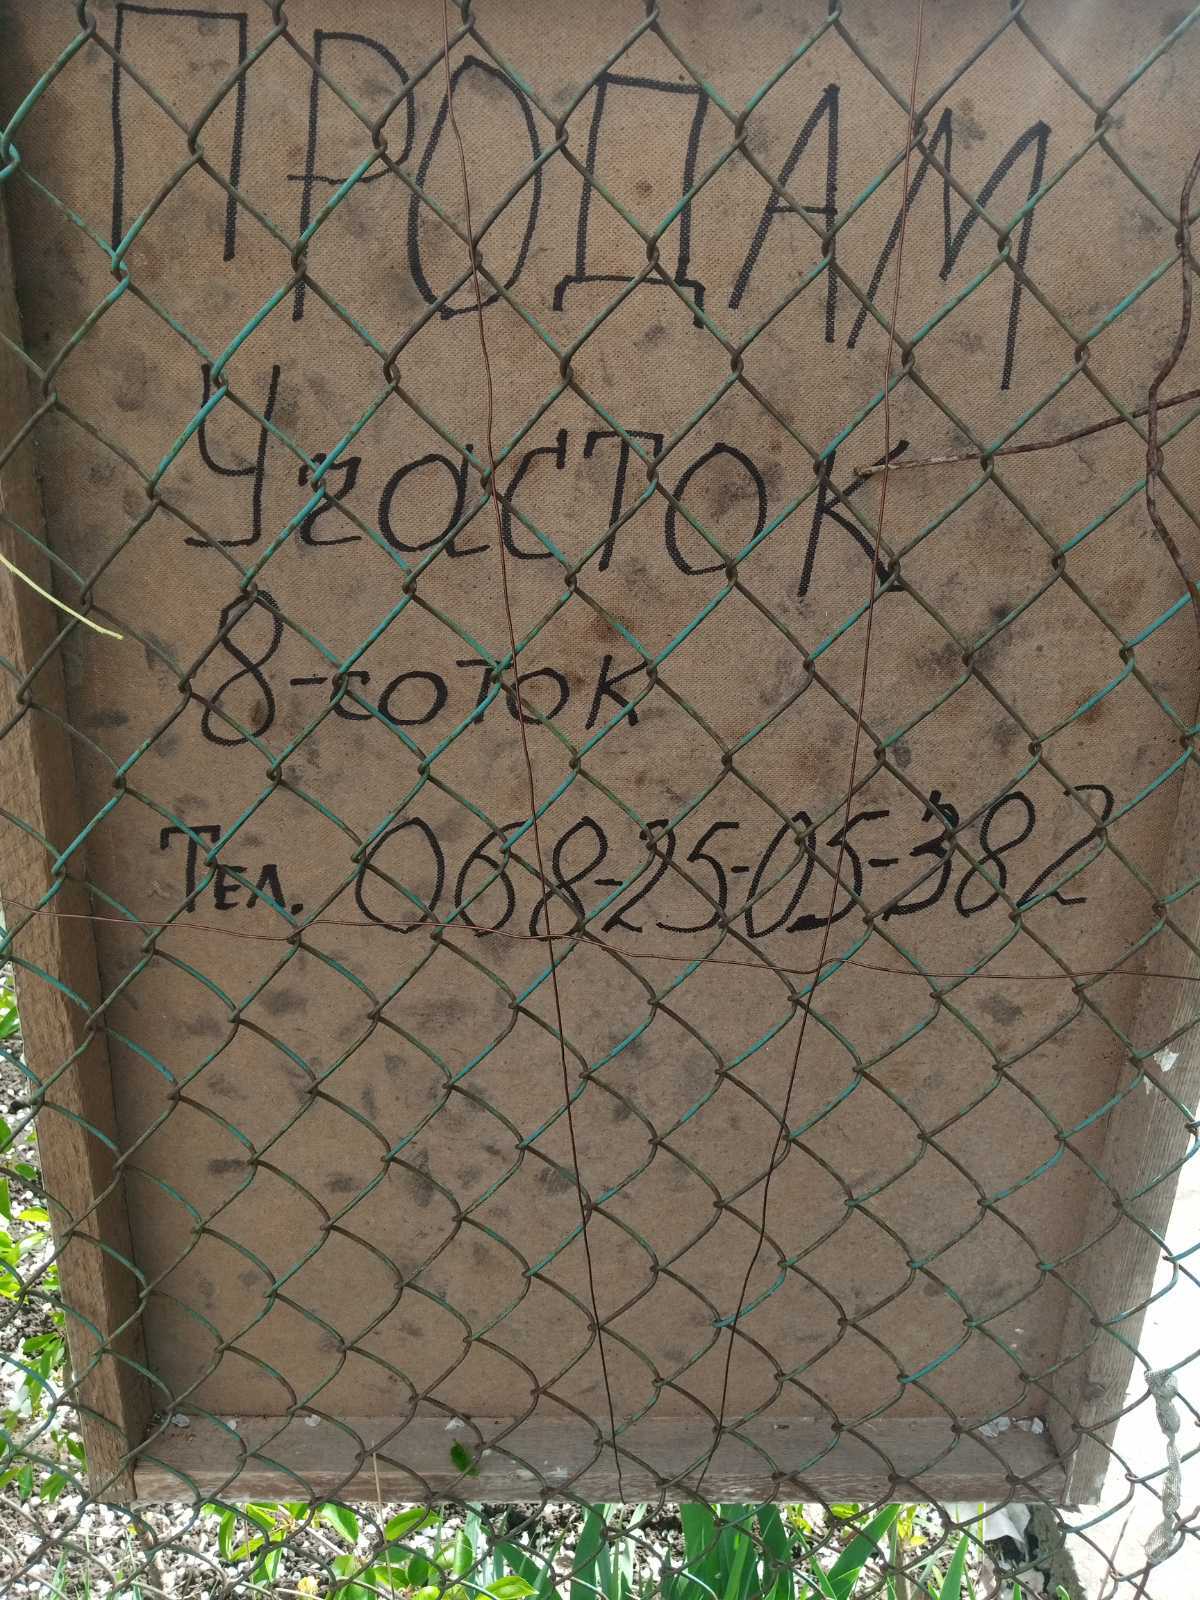 ПРОДАМ
Участок
8-соток
Тел. 068-25-05-382